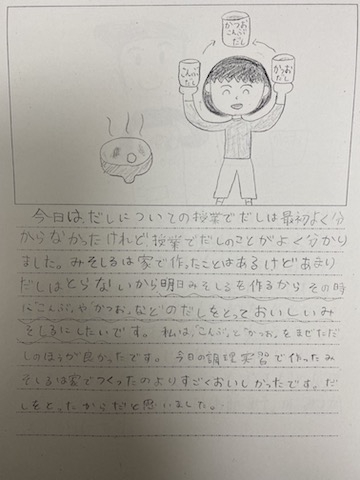 かつお
こんぶ
だし
こんぶ
だし
かつお
だし
今日は、だしについての授業でだしは最初よく分
からなかったけれど、授業でだしのことがよく分かり
ました。みそしるは家で作ったことはあるけどあまり
だしはとらないから明日みそしるを作るから、その時
に"こんぶ"や"かつお"などのだしをとっておいしいみ
そしるにしたいです。私は"こんぶ"と"かつお"をまぜただ
しのほうが良かったです。今日の調理実習で作ったみ
そしるは家でつくったのよりすごくおいしかったです。だ
しをとったからだと思いました。